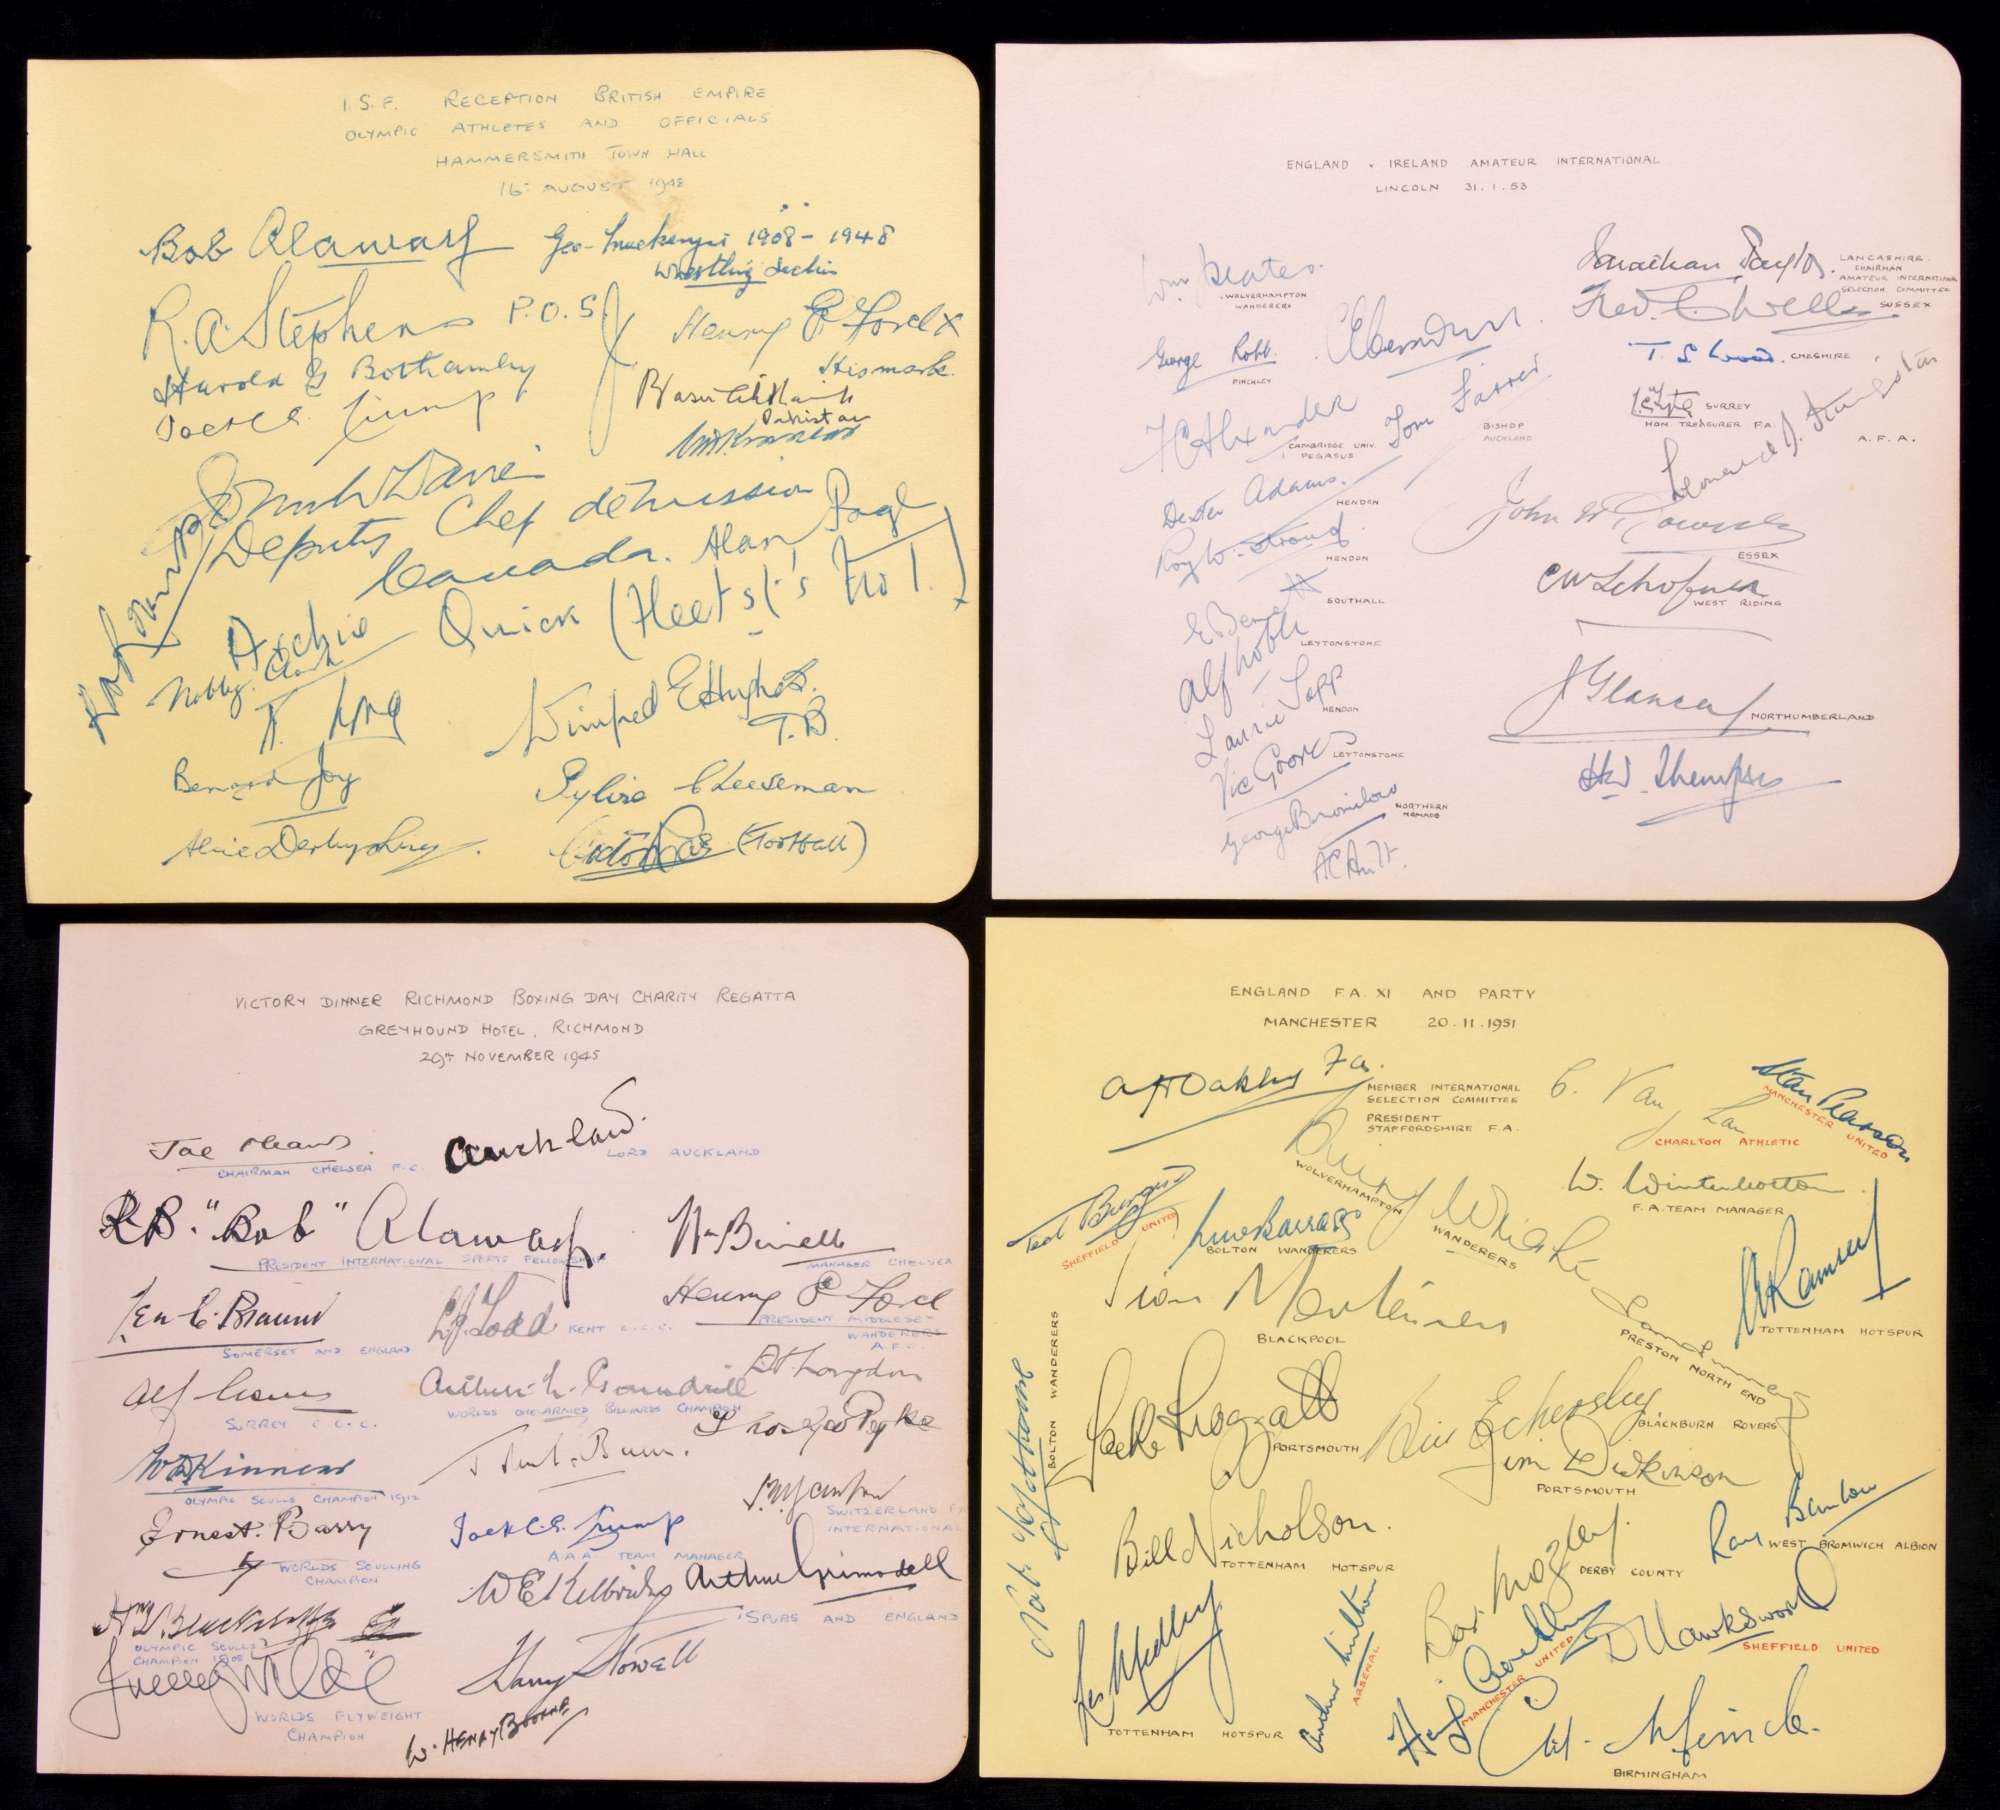 I.S.F. RECEPTION BRITISH EMPIRE
OLYMPIC ATHLETES AND OFFICIALS
HAMMERSMITH TOWN HALL
16 AUGUST 1948
Bob Alaway
1908 - 1948
Wrestling
R. A. Stephens P.O.S.
Henry P. Ford x
His mark.
Harold G Bothamley
Jack C.E. Crump
Pakistan
WDKinnear
Davies
Deputy Chef de mission
Canada.
Alan
Archie Quick (Fleet St's No 1.)
Nobby Clark
K. King
Winifred E Hughes.
T.B.
Bernard Joy
Sylvia Cheeseman
Alice Derbyshire.
Victor Rae (Football)
ENGLAND v IRELAND AMATEUR INTERNATIONAL
LINCOLN 31.1.53
WOLVERHAMPTON
WANDERERS
George Robb.
FINCHLEY
FCAlexander
CAMBRIDGE UNIV.
PEGASUS
Tom Farrer
BISHOP
AUCKLAND
Dexter Adams.
HENDON
Roy W. Stroud.
HENDON
E Bennett
SOUTHALL
Alf Noble
LEYTONSTONE
Laurie Topp
HENDON
Vic Groves
LEYTONSTONE
George Bromilow
NORTHERN
NOMADS
Jonathan Taylor.
LANCASHIRE.
CHAIRMAN
AMATEUR INTERNATIONAL
SELECTION COMMITTEE
Fred. C. Wells
SUSSEX
CHESHIRE
SURREY
HON TREASURER F.A.
A.F.A.
John W Bowers
ESSEX
WEST RIDING
J Glancey
NORTHUMBERLAND
HW. Thompson
VICTORY DINNER RICHMOND BOXING DAY CHARITY REGATTA
GREYHOUND HOTEL, RICHMOND
29TH NOVEMBER 1945
Joe Mears.
CHAIRMAN CHELSEA F.C.
Auckland.
LORD AUCKLAND
R.B. "Bob" Alaway.
PRESIDENT INTERNATIONAL SPORTS FELLOWSHIP
Wm Birrell
MANAGER CHELSEA
Len C. Braund
SOMERSET AND ENGLAND
LJ. Todd
KENT C.C.C.
Henry P Ford
PRESIDENT MIDDLESEX
WANDERERS
A.F.C.
Alf Gover
SURREY C.C.C.
Arthur
WORLDS ONE-ARMED BILLIARDS CHAMPION
Langdon
WDKinnear
OLYMPIC SCULLS CHAMPION 1912
Ernest. Barry
WORLDS SCULLING
CHAMPION
Jack C.E. Crump
A.A.A. TEAM MANAGER
SWITZERLAND F.A
INTERNATIONAL
Arthur Grimsdell
SPURS AND ENGLAND
OLYMPIC SCULLS
CHAMPION 1908
Jimmy Wilde
WORLDS FLYWEIGHT
CHAMPION
Harry Stowell
W. HENRY BOORNE
ENGLAND F.A. XI AND PARTY
MANCHESTER 20.11.1951
A H Oakley
MEMBER INTERNATIONAL
SELECTION COMMITTEE
PRESIDENT
STAFFORDSHIRE F.A.
C. Vaughan
CHARLTON ATHLETIC
Stan Pearson
MANCHESTER UNITED
Billy Wright
WOLVERHAMPTON
WANDERERS
W. Winterbottom.
F.A. TEAM MANAGER
Ted Burgin
SHEFFIELD UNITED
BOLTON WANDERERS
A Ramsey
TOTTENHAM HOTSPUR
Stan Mortensen
BLACKPOOL
Tom Finney
PRESTON NORTH END
Nat Lofthouse
BOLTON WANDERERS
Jack Froggatt
PORTSMOUTH
Bill Eckersley
BLACKBURN ROVERS
Jim Dickinson
PORTSMOUTH
Bill Nicholson.
TOTTENHAM HOTSPUR
Bert Mozley.
DERBY COUNTY
Ray Barlow
WEST BROMWICH ALBION
Les Medley
TOTTENHAM HOTSPUR
Arthur Milton
ARSENAL
Henry Cockburn
MANCHESTER UNITED
D Hawksworth
SHEFFIELD UNITED
Gil. Merrick.
BIRMINGHAM